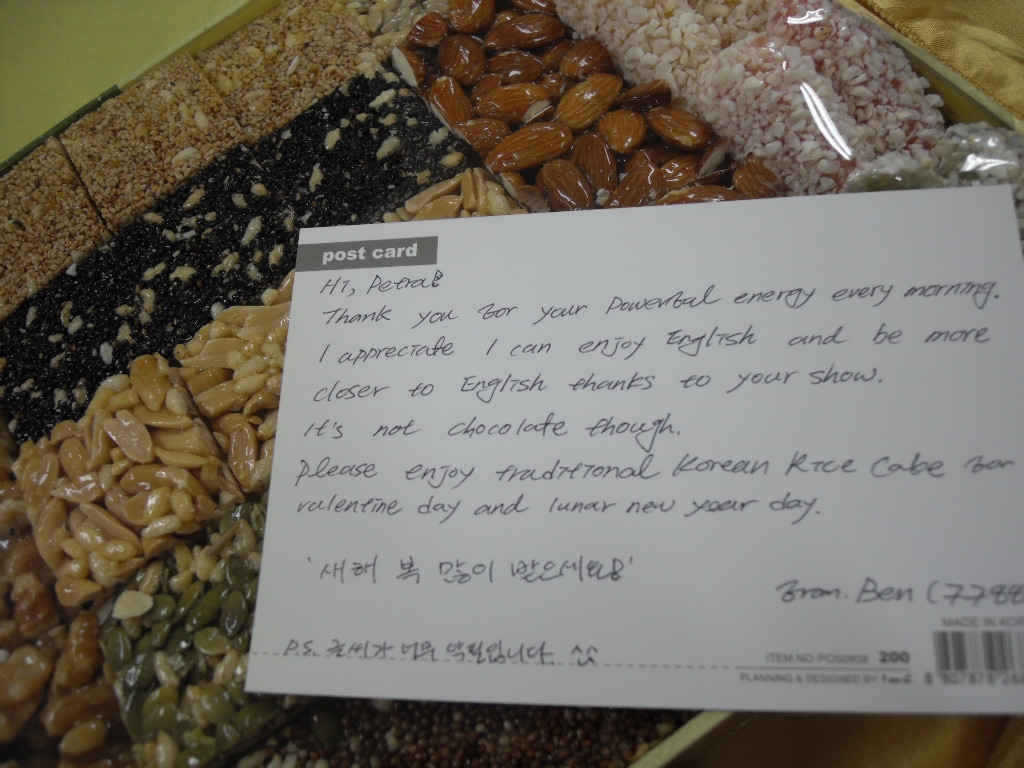 post card
Hi, Petra!
Thank you for your powerful energy every morning.
I appreciate I can enjoy English and be more
closer to English thanks to your show.
It's not chocolate though.
Please enjoy traditional Korean Rice Cake for
valentine day and lunar new year day.
'새해 복 많이 받으세요!'
from. Ben (7788
P.S. 글씨가 너무 악필입니다. ^^
MADE IN KOR
ITEM NO: PO50808 200
PLANNING & DESIGNED BY
8 807878 268